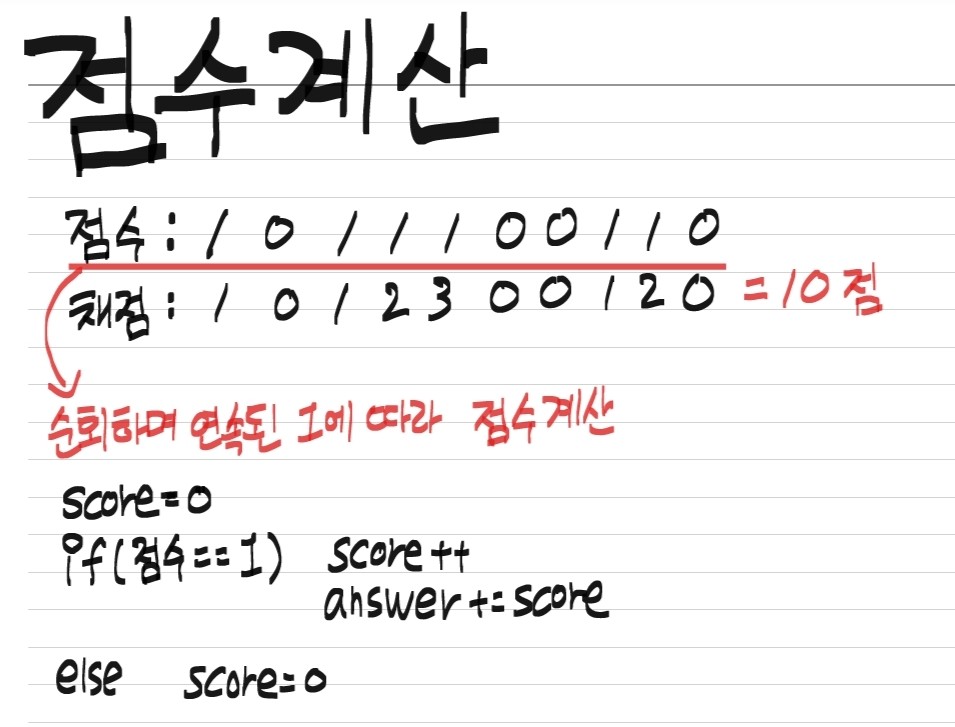 점수계산
점수 : 1 0 1 1 1 0 0 1 1 0
채점 : 1 0 1 2 3 0 0 1 2 0 = 10점
순회하며 연속된 1에 따라 점수계산
score=0
if(점수==1) score++
answer+=score
else score=0